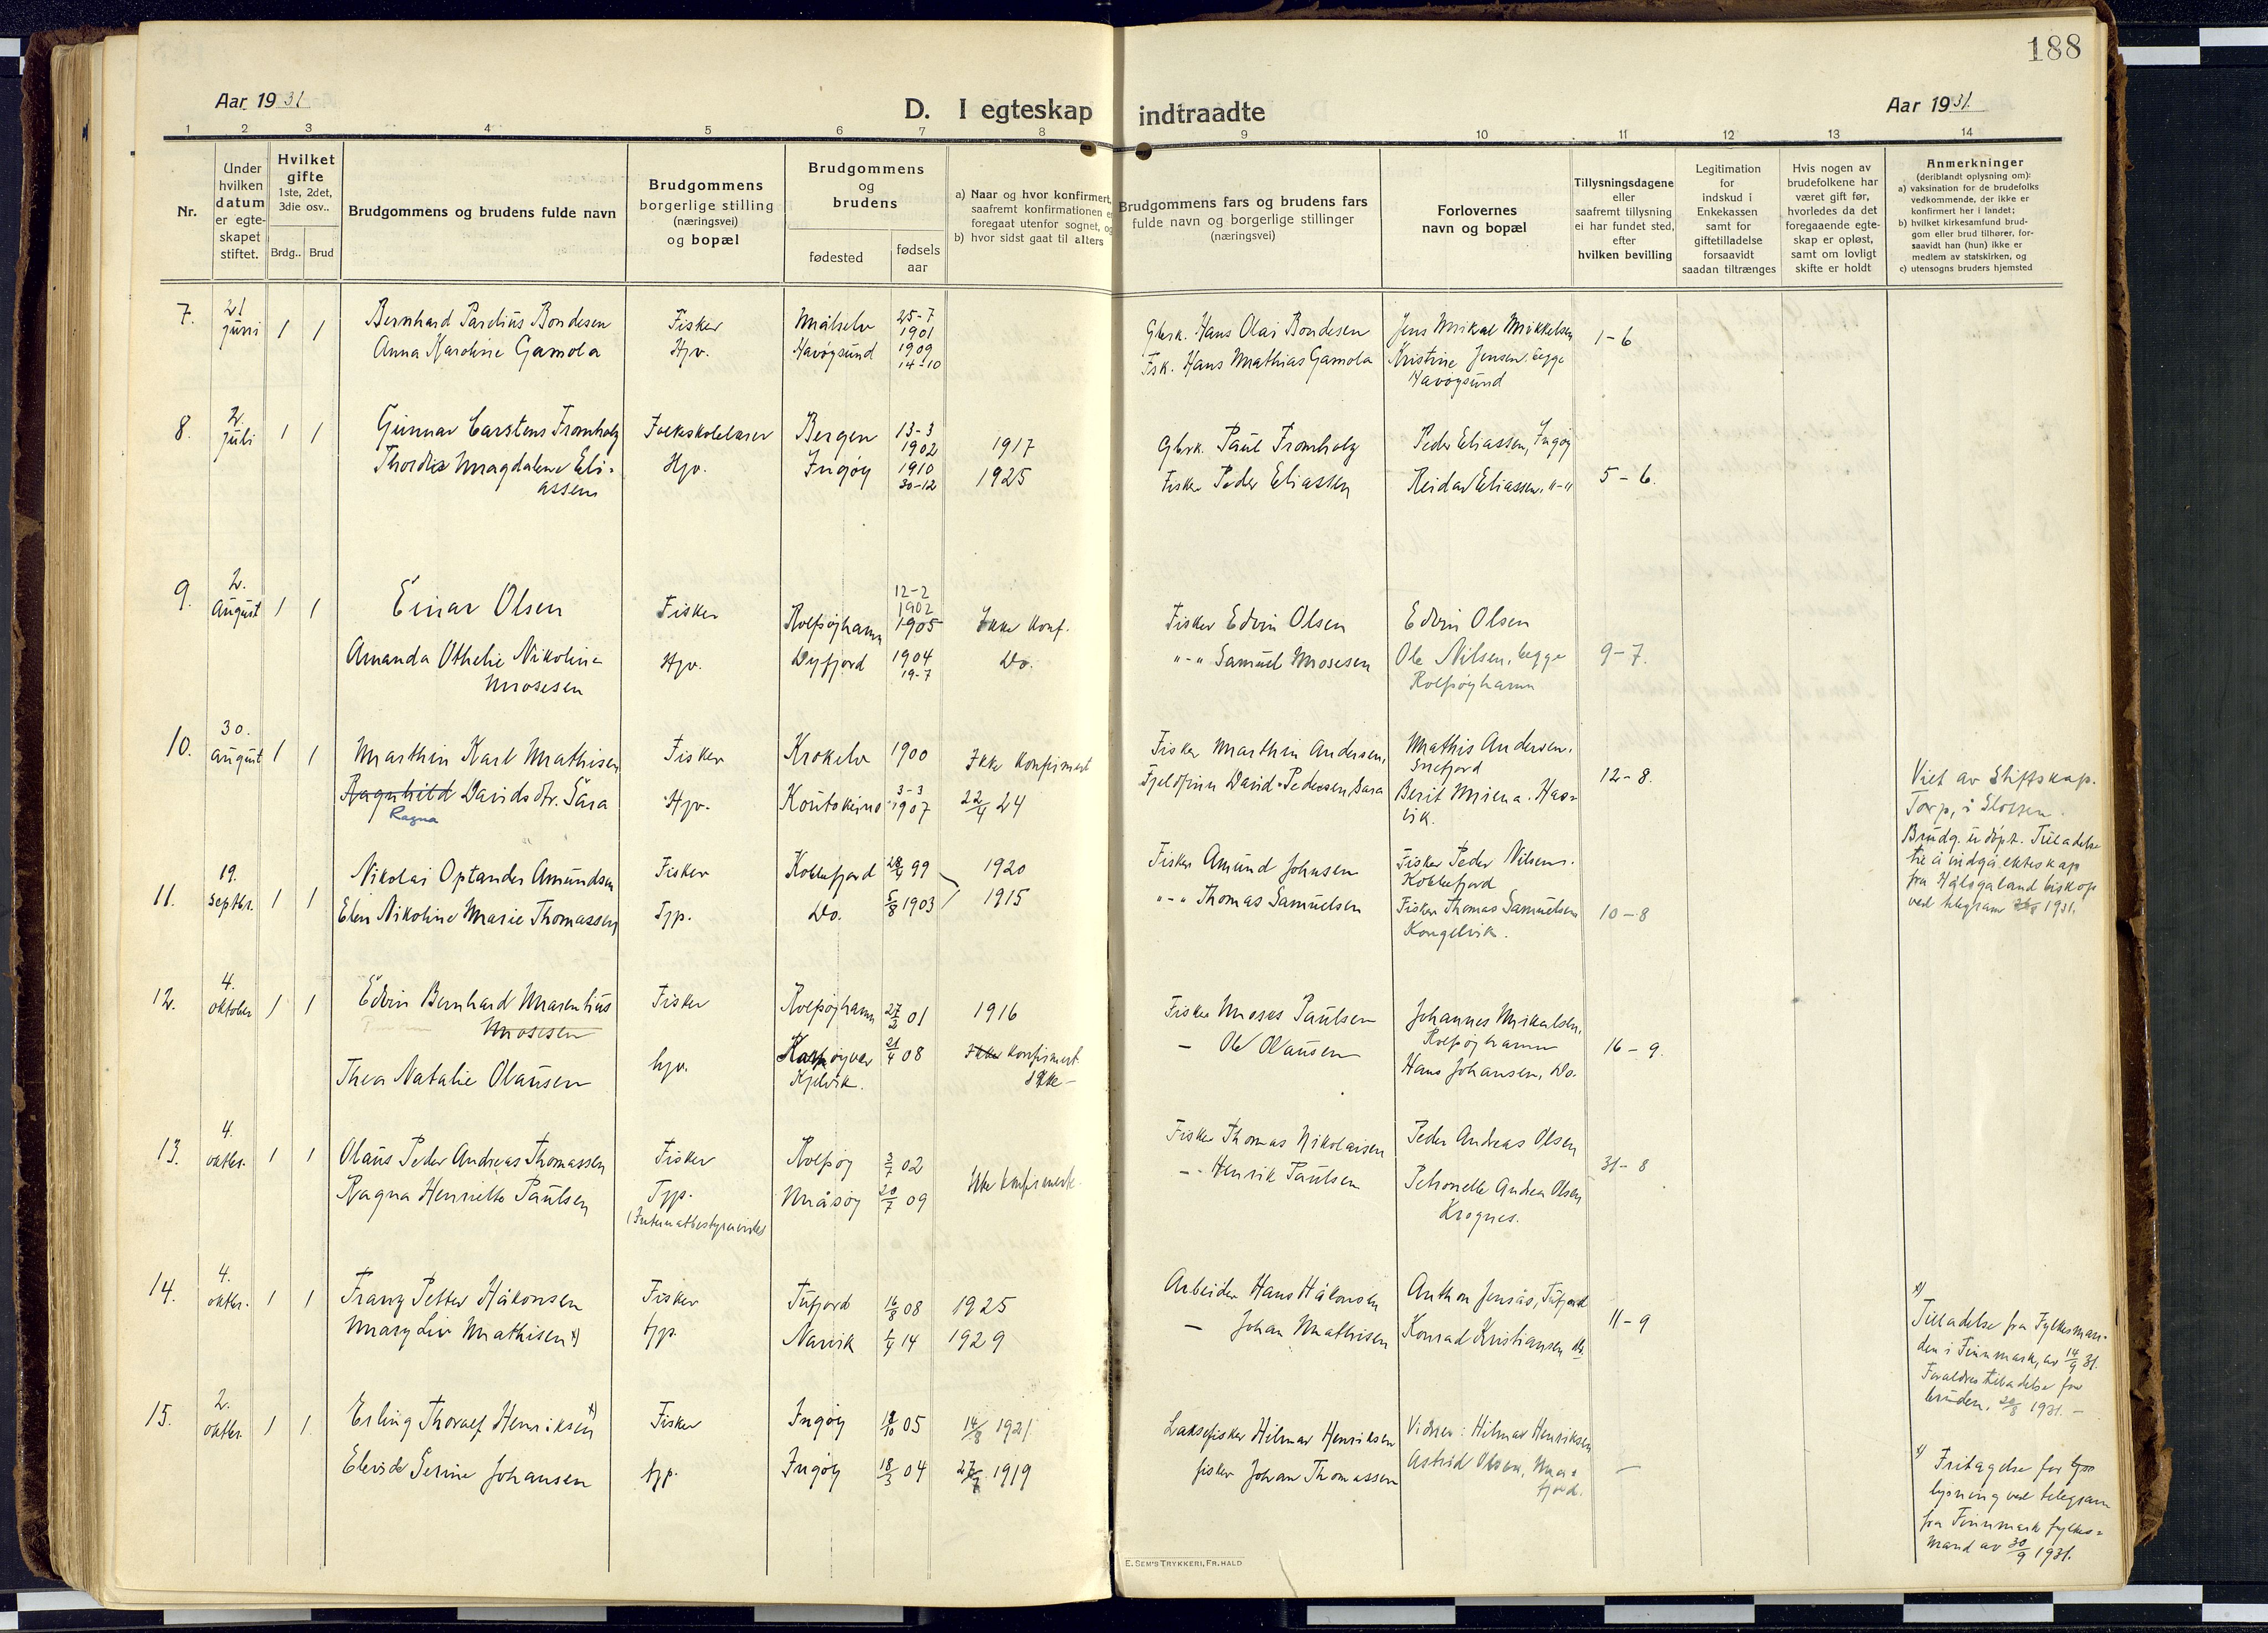 188
Aar 1931
D. I egteskap indtraadte
Aar 1931.
1 2 3 4 5 6 7 8 9 10 11 12 13 14
Nr.
Under
hvilken
datum
er egte-
skapet
stiftet.
Hvilket
gifte
1ste, 2det,
3die osv..
Brdg.. Brud
Brudgommens og brudens fulde navn
Brudgommens
borgerlige stilling
(næringsvei)
og bopæl
Brudgommens
og
brudens
fødested
fødsels
aar
a) Naar og hvor konfirmert,
saafremt konfirmationen
foregaat utenfor sognet, og
b) hvor sidst gaat til alters
Brudgommens fars og brudens fars
fulde navn og borgerlige stillinger
(næringsvei)
Forlovernes
navn og bopæl
Tillysningsdagene
eller
saafremt tillysning
ei har fundet sted,
efter
hvilken bevilling
Legitimation
for
indskud i
Enkekassen
samt for
giftetilladelse
forsaavidt
saadan tiltrænges
Hvis nogen av
brudefolkene har
været gift før,
hvorledes da det
foregaaende egte-
skap er opløst,
samt om lovligt
skifte er holdt
Anmerkninger
(deriblandt oplysning om):
a) vaksination for de brudefolks
vedkommende, der ikke er
konfirmert her i landet;
b) hvilket kirkesamfund brud-
gom eller brud tilhører, for-
saavidt han (hun) ikke er
medlem av statskirken, og
c) utensogns bruders hjemsted
7. 21 juni 1 1
Bernhard Parelius Bondesen Fisker Målselv 25-7 1901
Anna Karoline Gamola Hjv. Havøgsund 1909 14-10
Gbrk. Hans Olai Bondesen Jens Mikal Mikkelsen 1-6
Fsk. Hans Mathias Gamola Kristine Jensen, begge
Havøgsund
8. 2. juli 1 1
Gunnar Carstens Fromholz Folkeskolelærer Bergen 13-3 1902 1917
Thordis Magdalene Eli-
assen Hjv. Ingøy 1910 30-12 1925
Gbrk. Paul Fromholz Peder Eliassen, Ingøy
Fisker Peder Eliassen Reidar Eliassen, "-" 5-6.
9. 2. August 1 1
Einar Olsen Fisker Rolfsøyhamn 12-2 1902 1905 Ikke konf.
Amanda Othelie Nikoline
Mosesen Hjv. Dyfjord 1904 19-7 Do.
Fisker Edvin Olsen Edvin Olsen
"-" Samuel Mosesen Ole Nilsen, begge 9-7.
Rolfsøyhamn
10. 30. august 1 1
Marthin Karl Mathisen Fisker Krokelv 1900 Ikke konfirmert
Ragnhild Davidsdtr. Sara Hjv. Koutokeino 3-3 1907 22/4 24
Ragna
Fisker Marthin Andersen, Mathis Andersen,
Snefjord 12-8.
Fjeldfinn David Pedersen Sara Berit Miena. Hav-
vik.
Viet av Stiftskap.
Torp, i Slotten.
Brudg. er døpt. Tilladelse
til å indgå ekteskap
fra Hålogaland biskop
ved telegram 1931.
11. 19. septbr. 1 1
Nikolai Optander Amundsen Fisker Kobbefjord 28/4 99 1920
Elen Nikoline Marie Thomassen Tjp. Do. 5/8 1903 1915
Fisker Amund Johnsen Fisker Peder Nilsen.
Kobbefjord
"-" Thomas Samuelsen Fisker Thomas Samuelsen 10-8
Kongelvik.
12. 4. oktober 1 1
Edvin Bernhard Marentius
Mosesen Fisker Rolfsøyhamn 27/2 01 1916
Thea Natalie Olausen hjv. Kjelvik. 21/4 08 Ikke konfirmert
Ikke -
Fisker Moses Paulsen Johannes Mikalsen,
Rolfsøyhamn
- Ole Olausen Hans Johansen, Do. 16-9.
13. 4. oktbr. 1 1
Olaus Peder Andreas Thomassen Fisker Rolfsøy 3/7 02
Ragna Henriette Paulsen Tjp. Måsøy 20/7 09 Ikke konfirmerte.
(Internatbestyrerinde)
Fisker Thomas Nikolaisen Peder Andreas Olsen
-"- Henrik Paulsen Petronelle Andrea Olsen 31-8
Krognes.
14. 4. oktbr. 1 1
Franz Petter Håkonsen Fisker Tufjord 16/8 08 1925
Mary Liv Mathisen x) tjp. Narvik 1/4 14 1929
Arbeider Hans Håkonsen Anthon Jensås, Tufjord
- Johan Mathisen Konrad Kristiansen do. 11-9
x)
Tilladelse fra Fylkesman-
den i Finnmark, av 14/9 31.
Forældres tilladelse for
bruden, 20/8 1931. -
15. 2. oktbr. 1 1
Erling Thoralf Henriksen x) Fisker Ingøy 05 14/8 1921
Elevide Serine Johansen tjp. Ingøy 18/3 04 27/7 1919
Laksefisker Hilmar Henriksen Vidner: Hilmar Henriksen
fisker Johan Thomassen Astrid Olsen, Mas-
fjord. -
x) Fritagelse for
lysning ved telegram
fra Finnmark fylkes-
mand av 30/9 1931.
E. SEM'S TRYKKERI, FR.HALD